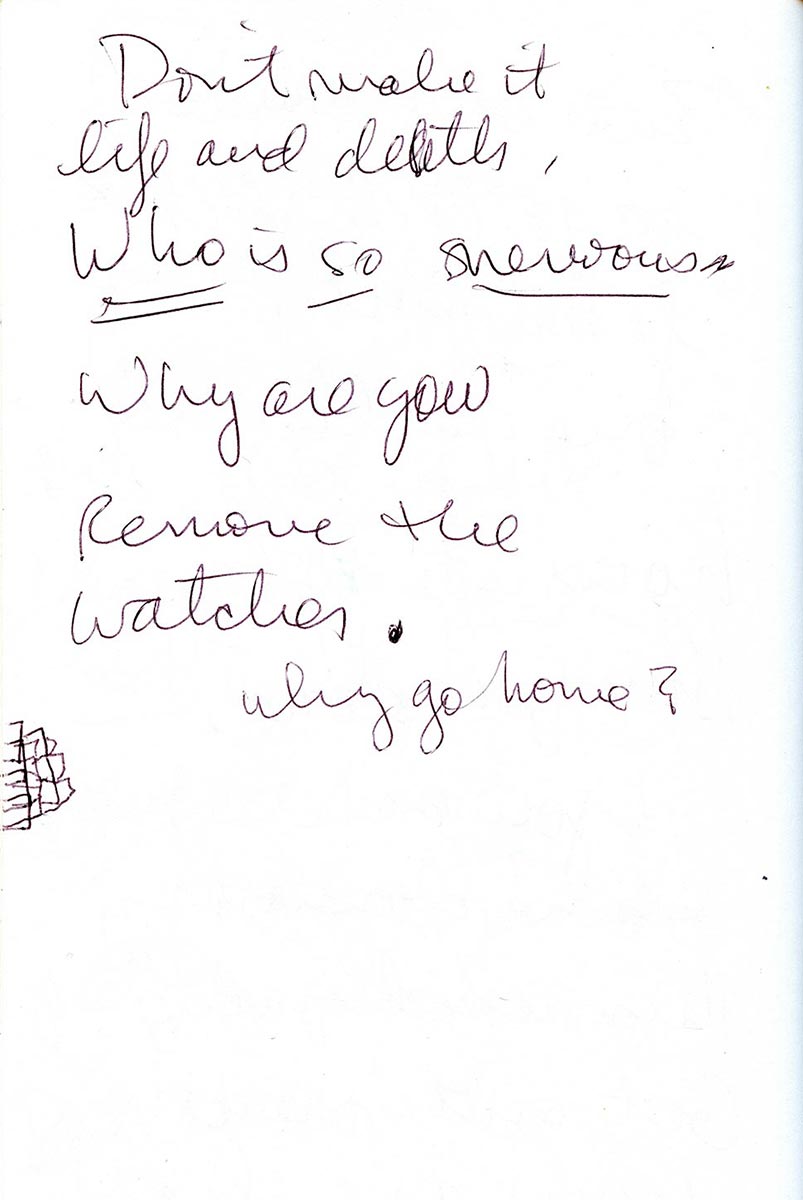 Don't make it
life and deatth,
Who is so snervous
Why are you
Remove the
watches.
why go home?